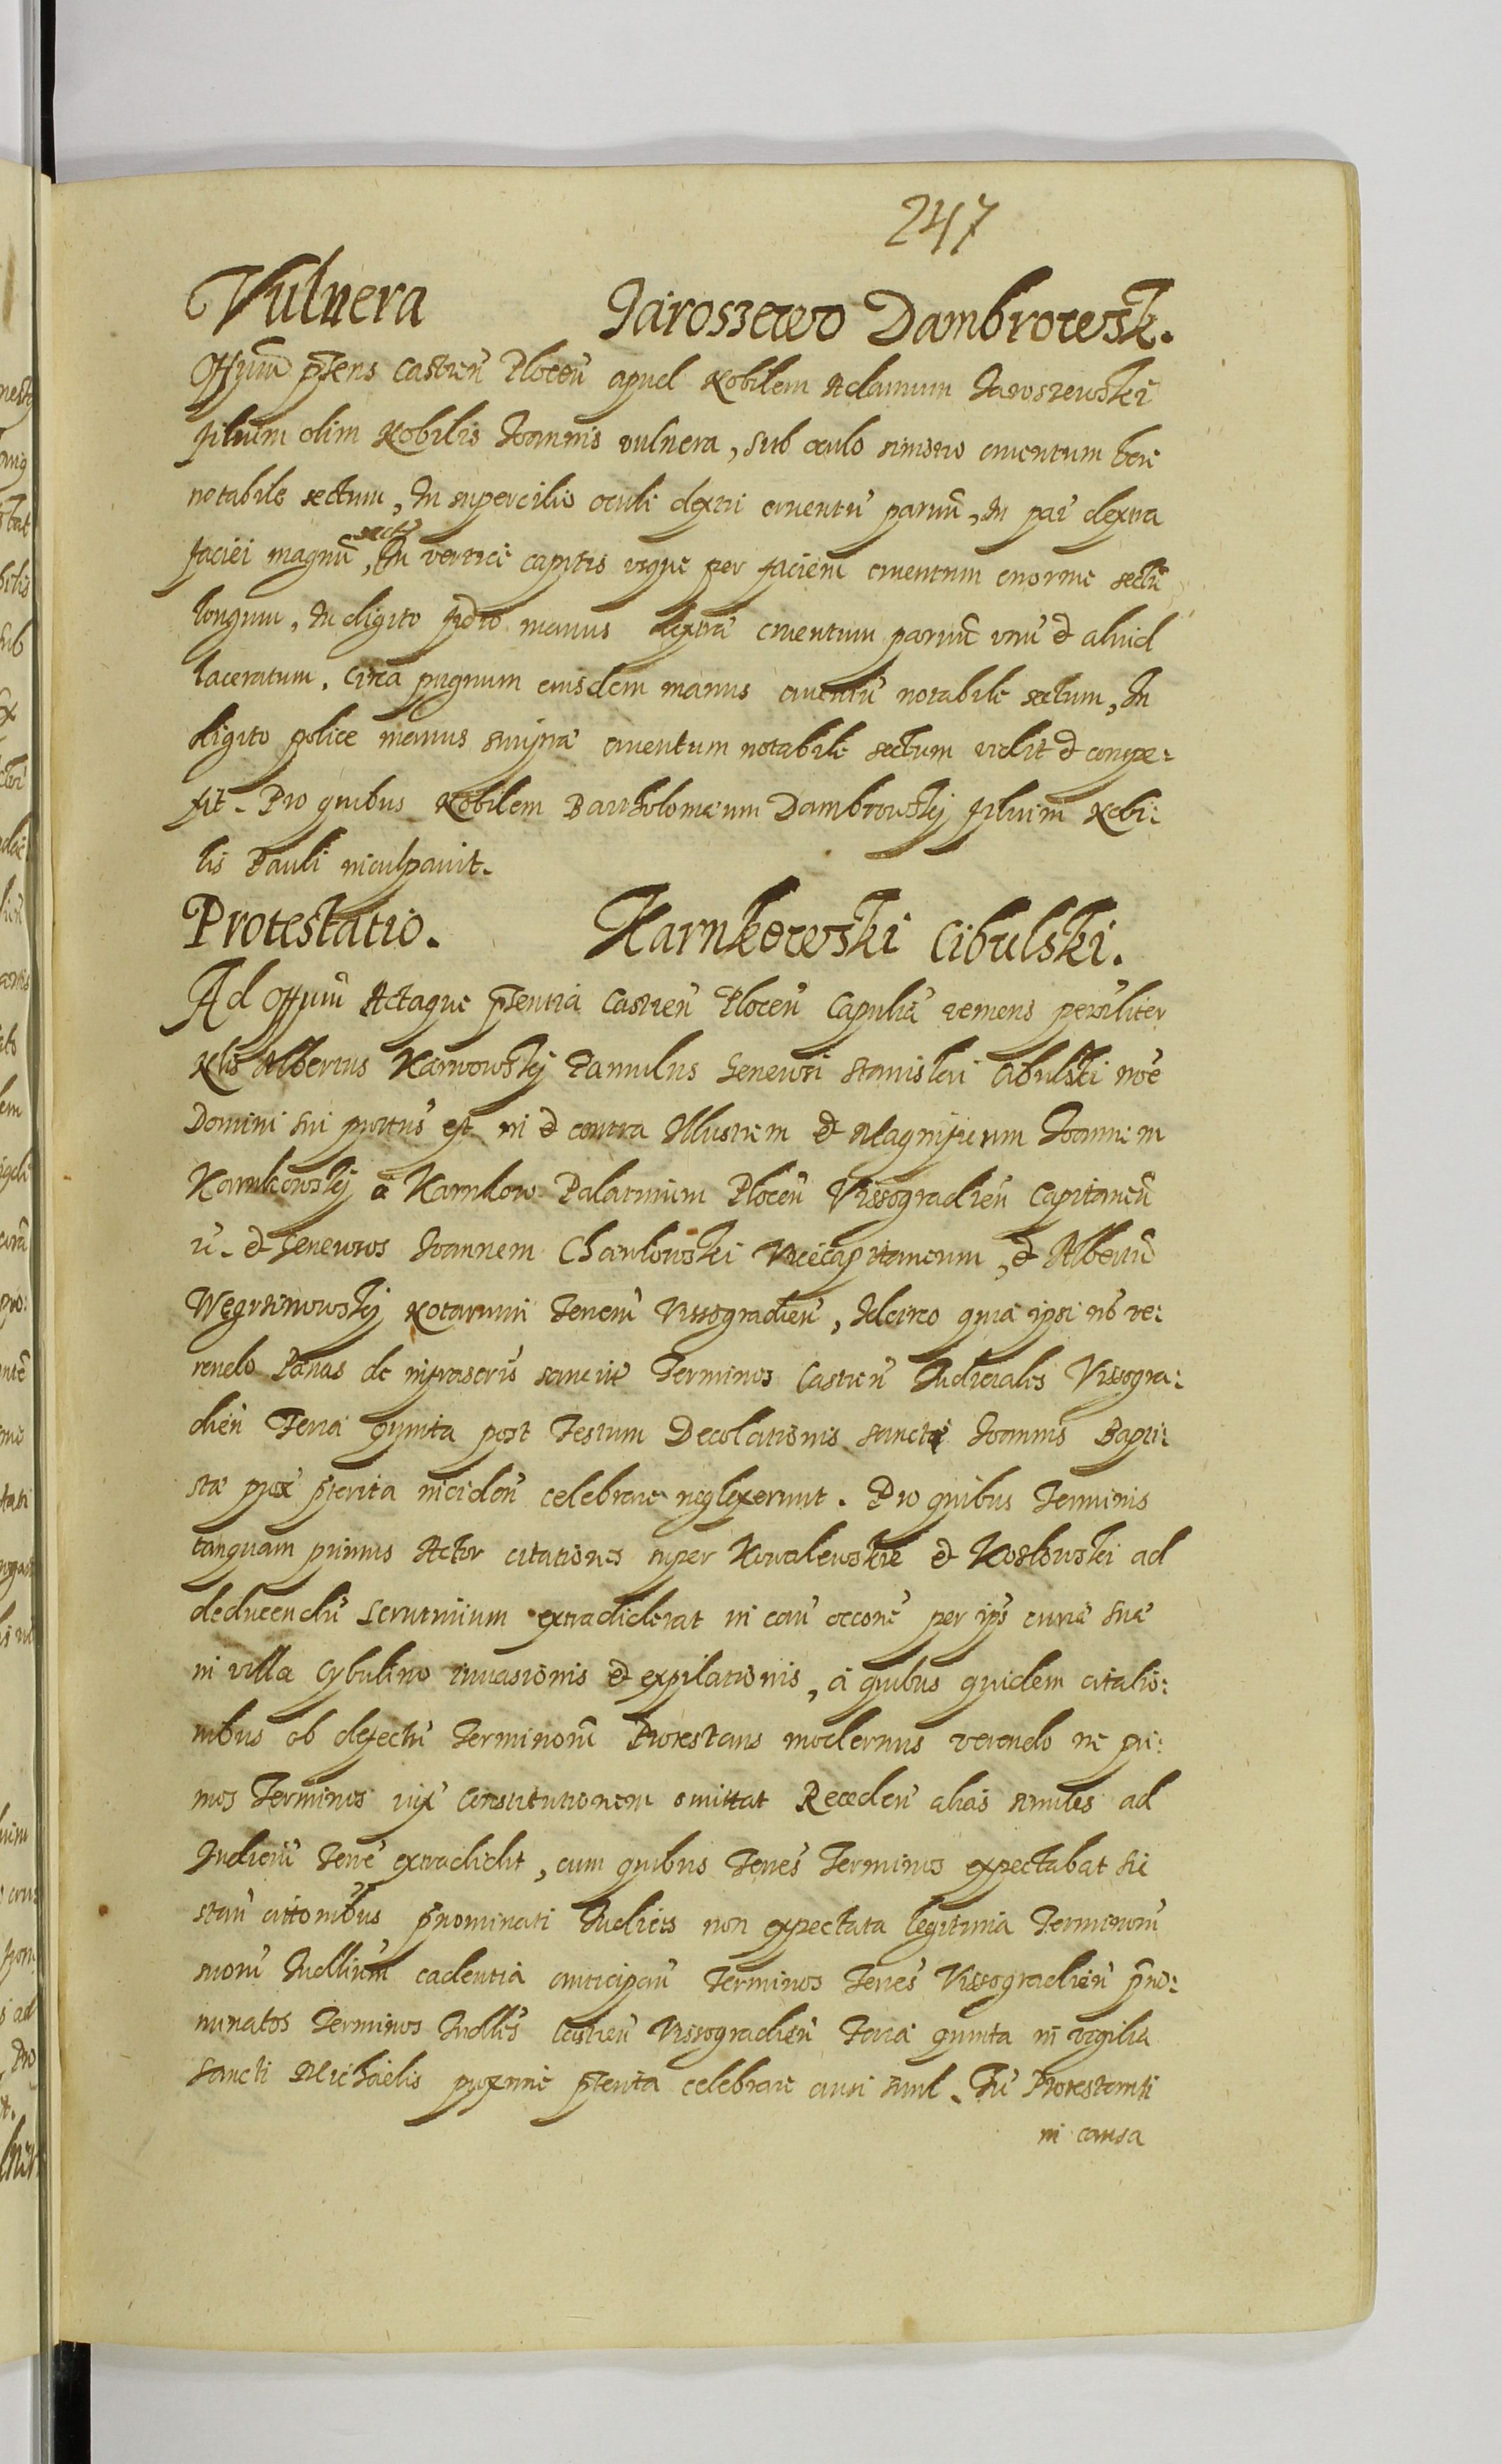 247
Vulnera Jaroszewo Dambrowsk.
Offium pñtens Castreñ Ploceñ apud Nobilem Adamum Jaroszewski
filium olim Nobilis Joannis vulnera, sub oculo sinistro cruentum bene
notabile sectum, In supercilio oculi dextri cruentũ paruũ, In par dextra
faciei magnũ sectũ, In vertice capitis usque per faciem cruentum enorme sectũ
longum, In digito manus dextræ cruentum paruũ unũ et aliud
laceratum. Circa pugnum eiusdem manus cruentũ notabile sectum, In
digito police manus sinistræ cruentum notabile sectum vidit et conspe:
xit. Pro quibus Nobilem Bartholomæum Dambrowskÿ filium Nobi:
lis Pauli inculpauit.
Protestatio. Karnkowski Cibulski.
Ad Offium Actaque pñtentia Castreñ Ploceñ Capitulia veniens personaliter
Nlis Albertus Karnowskÿ Famulus Generosi Stanislai Cibulski noĩe
Domini sui protus est in et contra Illustrem et Magnificum Joannem
Karnkowskÿ à Karnkow Palatinum Ploceñ Vissogradieñ Capitaneũ
et Generosos Joannem Charlowski Vicecapitaneum, et Albertũ
Wegrzinowskÿ Notarium Terreñ Vissogradieñ, Idcirco quia ipsi nõ ve:
rendo Pænas de infrascris sancite Terminos Castreñ Judiciales Vissogra:
dieñ Feria quinta post Festum Decolationis Sancti Joannis Bapti:
stæ prox pñterita incideñ celebrare neglexerunt. Pro quibus Terminis
tanquam primus Actor citationes super Kowalewskie et Koslowski ad
deducendũ Scrutinium extradiderat in cau occone per ips curiæ suæ
in villa Cybulino inuasionis et expilationis, à quibus quidem citatio:
nibus ob defectũ Terminorũ Protestans modernus verendo ne pri:
mos Terminos iux Constitutionem omittat Recedeñ alias similes ad
Judiciũ Terrẽ extradidit, cum quibus Terres Terminos expectabat
stañ cittonibus pñnominati Judices non expectata legitima Terminorũ
suorũ Judliũm cadentia anticipañ Terminos Terres Vissogradieñ pñno:
minatos Terminos Judles Castreñ Vissogradieñ Feria quinta in vigilia
Sancti Michaelis proxime pñterita celebrare ausi sunt. Protestanti
in causa